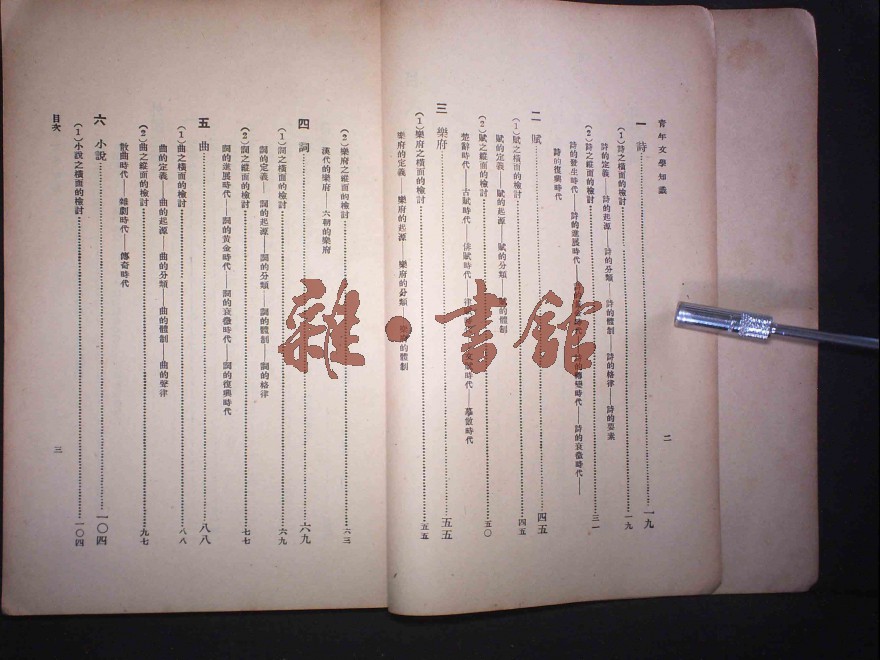 青年文學知識
二
一 詩……一九
(1)詩之橫面的檢討……一九
詩的定義——詩的起源——詩的分類——詩的體制——詩的格律——詩的要素
(2)詩之縱面的檢討……三一
詩的發生時代——詩的進展時代——詩的時代——詩的轉變時代——詩的衰微時代——
詩的復興時代
二 賦……四五
(1)賦之橫面的檢討……四五
賦的定義——賦的起源——賦的分類——賦的體制
(2)賦之縱面的檢討……五〇
楚辭時代——古賦時代——俳賦時代——律時代——文賦時代——摹倣時代
三 樂府……五五
(1)樂府之橫面的檢討……五五
樂府的定義——樂府的起源——樂府的分類——樂府的體制
(2)樂府之縱面的檢討……六三
漢代的樂府——六朝的樂府
四 詞……六九
(1)詞之橫面的檢討……六九
詞的定義——詞的起源——詞的分類——詞的體制——詞的格律
(2)詞之縱面的檢討……七七
詞的進展時代——詞的黃金時代——詞的衰微時代——詞的復興時代
五 曲……八八
(1)曲之橫面的檢討……八八
曲的定義——曲的起源——曲的分類——曲的體制——曲的聲律
(2)曲之縱面的檢討……九七
散曲時代——雜劇時代——傳奇時代
六 小說……一〇四
(1)小說之橫面的檢討……一〇四
目次
三
雜·書館